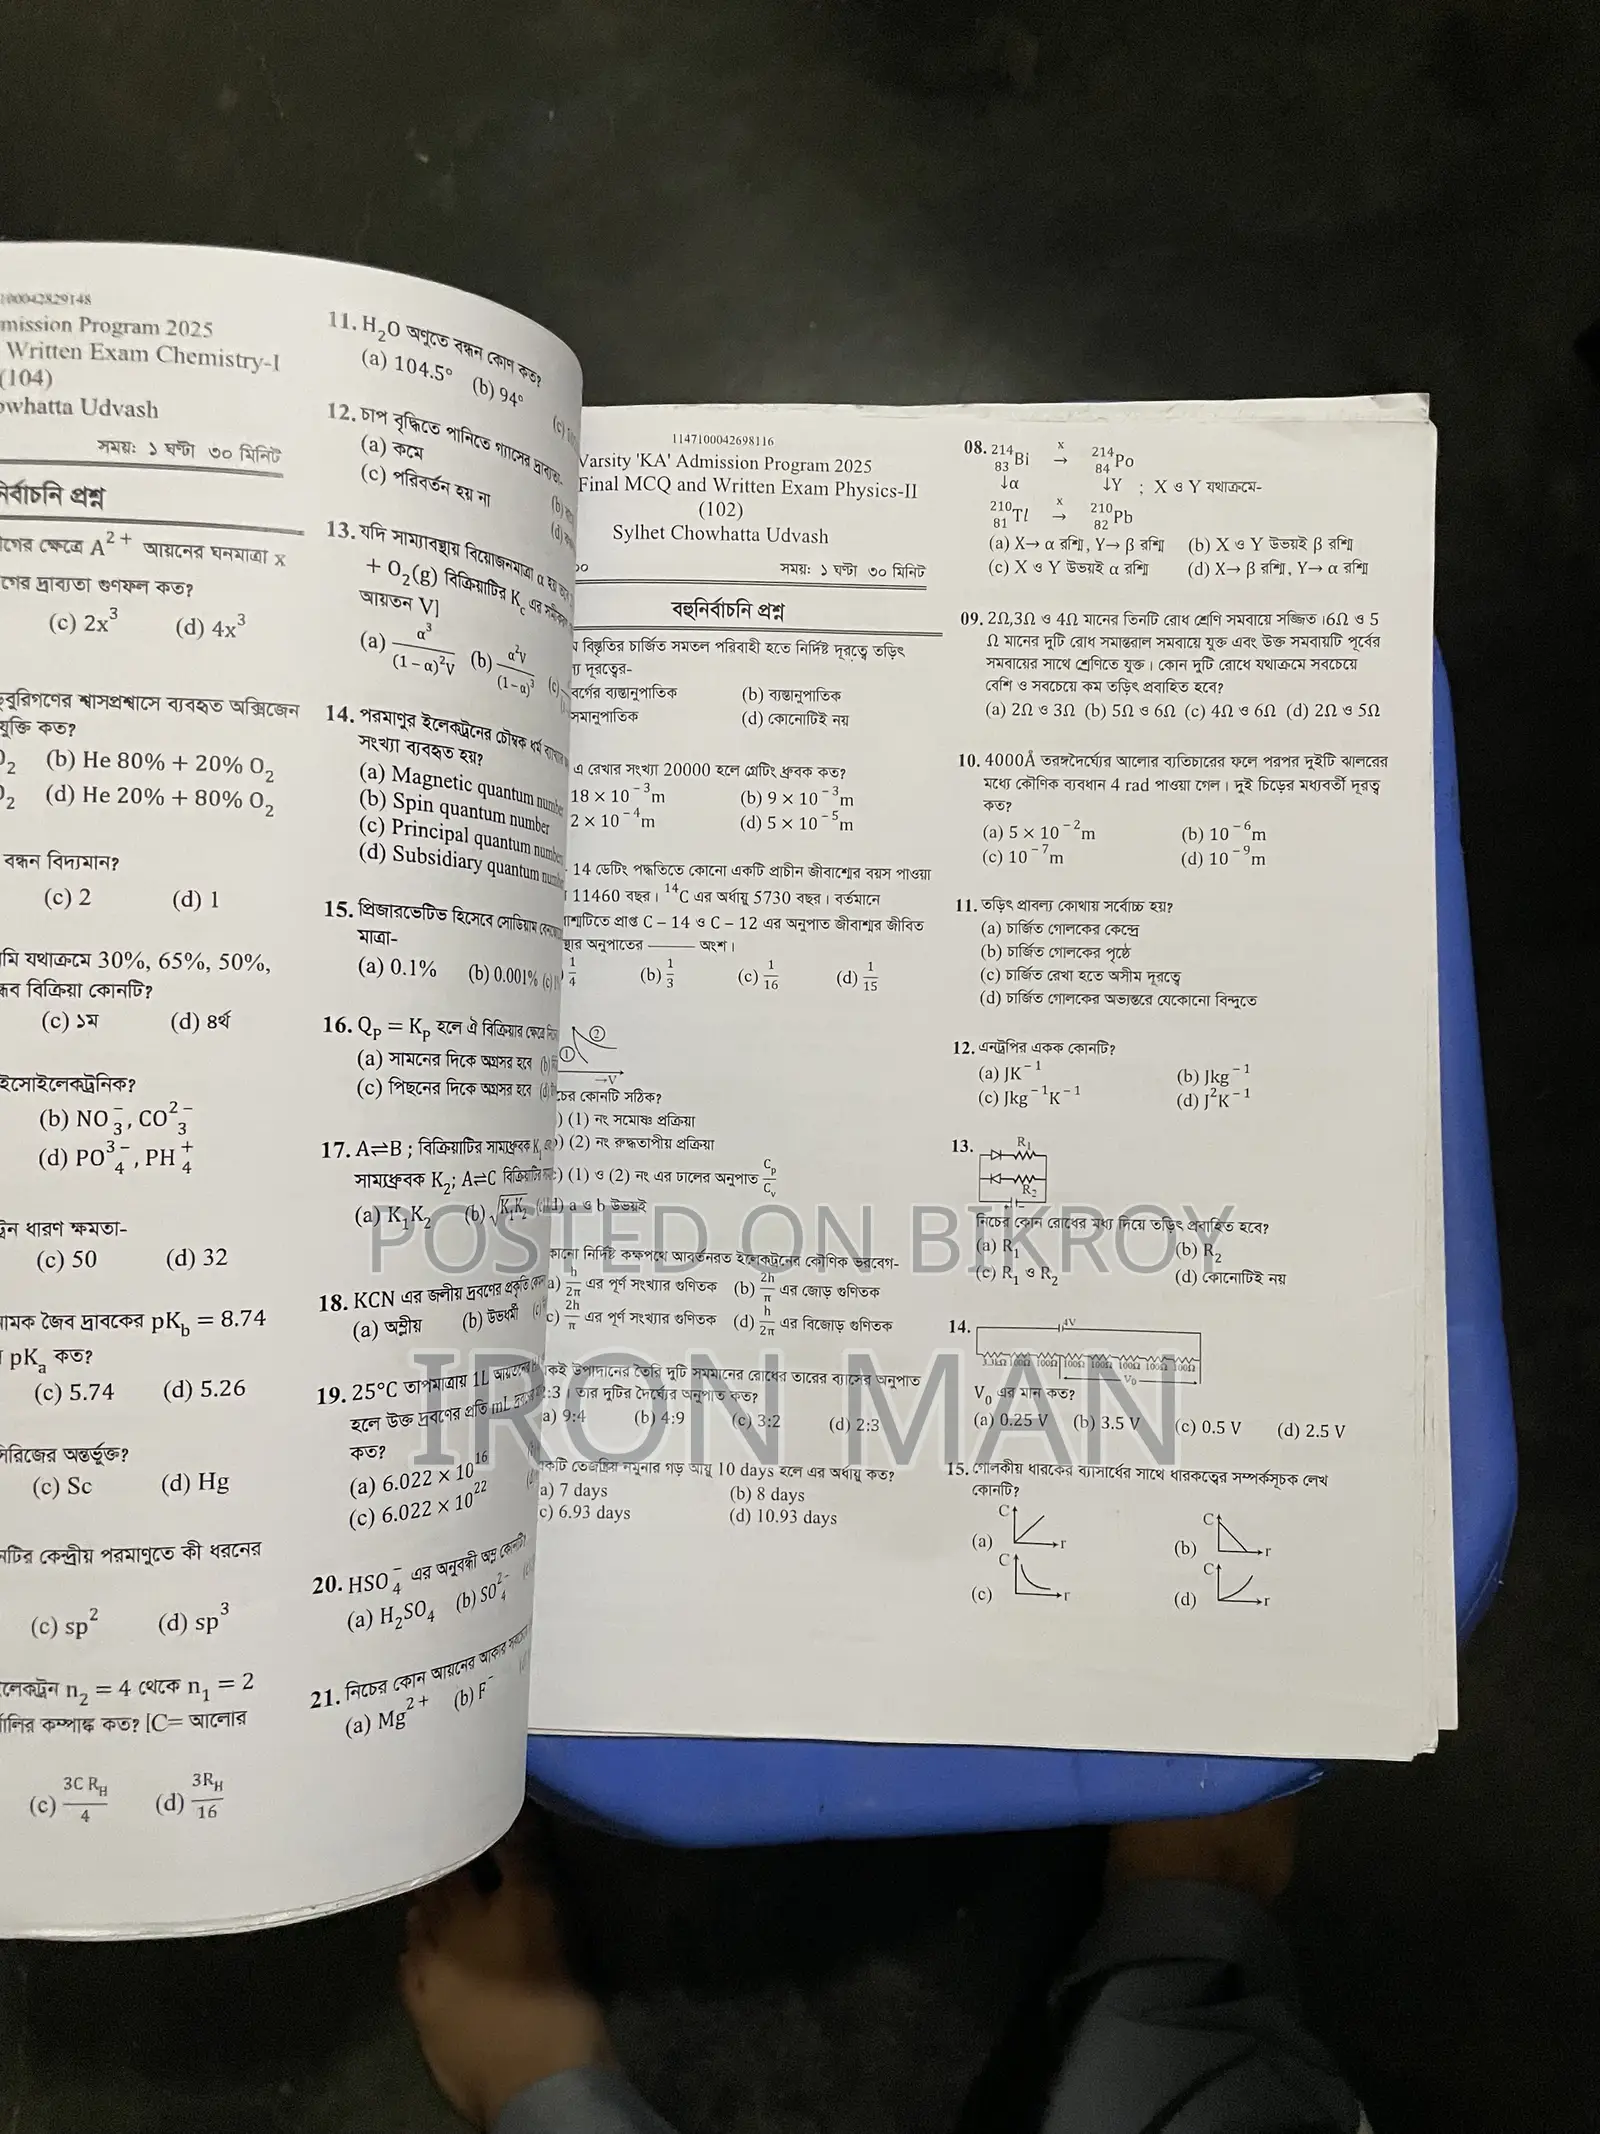 100042829148
mission Program 2025
Written Exam Chemistry-I
(104)
owhatta Udvash
সময়ঃ ১ ঘণ্টা ৩০ মিনিট
নির্বাচনি প্রশ্ন
ক্ষেত্রে A²⁺ আয়নের ঘনমাত্রা x
দ্রাব্যতা গুণফল কত?
(c) 2x³ (d) 4x³
ডুবুরিগণের শ্বাসপ্রশ্বাসে ব্যবহৃত অক্সিজেন
কত?
O₂ (b) He 80% + 20% O₂
O₂ (d) He 20% + 80% O₂
বন্ধন বিদ্যমান?
(c) 2 (d) 1
যথাক্রমে 30%, 65%, 50%,
বিক্রিয়া কোনটি?
(c) ১ম (d) ৪র্থ
আইসোইলেকট্রনিক?
(b) NO₃⁻, CO₃²⁻
(d) PO₄³⁻, PH₄⁺
ধারণ ক্ষমতা-
(c) 50 (d) 32
নামক জৈব দ্রাবকের pK_b = 8.74
pK_a কত?
(c) 5.74 (d) 5.26
সিরিজের অন্তর্ভূক্ত?
(c) Sc (d) Hg
কেন্দ্রীয় পরমাণুতে কী ধরনের
(c) sp² (d) sp³
n₂ = 4 থেকে n₁ = 2
কম্পাঙ্ক কত? [C= আলোর
(c) 3C R_H/4 (d) 3R_H/16
11. H₂O অণুতে বন্ধন কোণ কত?
(a) 104.5° (b) 94°
12. চাপ বৃদ্ধিতে পানিতে গ্যাসের দ্রাব্যতা-
(a) কমে
(c) পরিবর্তন হয় না
13. যদি সাম্যাবস্থায় বিয়োজনমাত্রা α হয়
+ O₂(g) বিক্রিয়াটির K_c এর
আয়তন V]
(a) α³/(1−α)²V (b) α²V/(1−α)³
14. পরমাণুর ইলেকট্রনের চৌম্বক ধর্ম
সংখ্যা ব্যবহৃত হয়?
(a) Magnetic quantum number
(b) Spin quantum number
(c) Principal quantum number
(d) Subsidiary quantum
15. প্রিজারভেটিভ হিসেবে সোডিয়াম
মাত্রা-
(a) 0.1% (b) 0.001%
16. Q_p = K_p হলে ঐ বিক্রিয়ার ক্ষেত্রে
(a) সামনের দিকে অগ্রসর হবে
(c) পিছনের দিকে অগ্রসর হবে
17. A⇌B ; বিক্রিয়াটির সাম্যধ্রুবক K₁
সাম্যধ্রুবক K₂; A⇌C
(a) K₁K₂ (b) √K₁K₂
18. KCN এর জলীয় দ্রবণের প্রকৃতি
(a) অম্লীয় (b) উভধর্মী
19. 25°C তাপমাত্রায় 1L
হলে উক্ত দ্রবণের প্রতি mL
কত?
(a) 6.022 × 10¹⁶
(c) 6.022 × 10²²
20. HSO₄⁻ এর অনুবন্ধী অম্ল কোনটি?
(a) H₂SO₄ (b) SO₄²⁻
21. নিচের কোন আয়নের আকার
(a) Mg²⁺ (b) F⁻
1147100042698116
Varsity 'KA' Admission Program 2025
Final MCQ and Written Exam Physics-II
(102)
Sylhet Chowhatta Udvash
সময়ঃ ১ ঘণ্টা ৩০ মিনিট
বহুনির্বাচনি প্রশ্ন
বিস্তৃতির চার্জিত সমতল পরিবাহী হতে নির্দিষ্ট দূরত্বে তড়িৎ
দূরত্বের-
বর্গের ব্যস্তানুপাতিক (b) ব্যস্তানুপাতিক
সমানুপাতিক (d) কোনোটিই নয়
এ রেখার সংখ্যা 20000 হলে গ্রেটিং ধ্রুবক কত?
18 × 10⁻³m (b) 9 × 10⁻³m
2 × 10⁻⁴m (d) 5 × 10⁻⁵m
14 ডেটিং পদ্ধতিতে কোনো একটি প্রাচীন জীবাশ্মের বয়স পাওয়া
11460 বছর। ¹⁴C এর অর্ধায়ু 5730 বছর। বর্তমানে
প্রাপ্ত C − 14 ও C − 12 এর অনুপাত জীবাশ্মর জীবিত
অনুপাতের ——— অংশ।
1/4 (b) 1/3 (c) 1/16 (d) 1/15
② ①
→V
কোনটি সঠিক?
(1) নং সমোষ্ণ প্রক্রিয়া
(2) নং রুদ্ধতাপীয় প্রক্রিয়া
(1) ও (2) নং এর ঢালের অনুপাত C_p/C_v
d) a ও b উভয়ই
কোনো নির্দিষ্ট কক্ষপথে আবর্তনরত ইলেকট্রনের কৌণিক ভরবেগ-
a) h/2π এর পূর্ণ সংখ্যার গুণিতক (b) 2h/π এর জোড় গুণিতক
c) 2h/π এর পূর্ণ সংখ্যার গুণিতক (d) h/2π এর বিজোড় গুণিতক
একই উপাদানের তৈরি দুটি সমমানের রোধের তারের ব্যাসের অনুপাত
2:3। তার দুটির দৈর্ঘ্যের অনুপাত কত?
a) 9:4 (b) 4:9 (c) 3:2 (d) 2:3
একটি তেজস্ক্রিয় নমুনার গড় আয়ু 10 days হলে এর অর্ধায়ু কত?
a) 7 days (b) 8 days
c) 6.93 days (d) 10.93 days
08. ²¹⁴₈₃Bi x→ ²¹⁴₈₄Po
↓α ↓Y ; X ও Y যথাক্রমে-
²¹⁰₈₁Tl x→ ²¹⁰₈₂Pb
(a) X→ α রশ্মি, Y→ β রশ্মি (b) X ও Y উভয়ই β রশ্মি
(c) X ও Y উভয়ই α রশ্মি (d) X→ β রশ্মি, Y→ α রশ্মি
09. 2Ω,3Ω ও 4Ω মানের তিনটি রোধ শ্রেণি সমবায়ে সজ্জিত।6Ω ও 5
Ω মানের দুটি রোধ সমান্তরাল সমবায়ে যুক্ত এবং উক্ত সমবায়টি পূর্বের
সমবায়ের সাথে শ্রেণিতে যুক্ত। কোন দুটি রোধে যথাক্রমে সবচেয়ে
বেশি ও সবচেয়ে কম তড়িৎ প্রবাহিত হবে?
(a) 2Ω ও 3Ω (b) 5Ω ও 6Ω (c) 4Ω ও 6Ω (d) 2Ω ও 5Ω
10. 4000Å তরঙ্গদৈর্ঘ্যের আলোর ব্যতিচারের ফলে পরপর দুইটি ঝালরের
মধ্যে কৌণিক ব্যবধান 4 rad পাওয়া গেল। দুই চিড়ের মধ্যবর্তী দূরত্ব
কত?
(a) 5 × 10⁻²m (b) 10⁻⁶m
(c) 10⁻⁷m (d) 10⁻⁹m
11. তড়িৎ প্রাবল্য কোথায় সর্বোচ্চ হয়?
(a) চার্জিত গোলকের কেন্দ্রে
(b) চার্জিত গোলকের পৃষ্ঠে
(c) চার্জিত রেখা হতে অসীম দূরত্বে
(d) চার্জিত গোলকের অভ্যন্তরে যেকোনো বিন্দুতে
12. এনট্রপির একক কোনটি?
(a) JK⁻¹ (b) Jkg⁻¹
(c) Jkg⁻¹K⁻¹ (d) J²K⁻¹
13. R₁
R₂
নিচের কোন রোধের মধ্য দিয়ে তড়িৎ প্রবাহিত হবে?
(a) R₁ (b) R₂
(c) R₁ ও R₂ (d) কোনোটিই নয়
14. 4V
3.3kΩ 100Ω 100Ω 100Ω 100Ω 100Ω 100Ω 100Ω
V₀
V₀ এর মান কত?
(a) 0.25 V (b) 3.5 V (c) 0.5 V (d) 2.5 V
15. গোলকীয় ধারকের ব্যাসার্ধের সাথে ধারকত্বের সম্পর্কসূচক লেখ
কোনটি?
(a) C r (b) C r
(c) C r (d) C r
POSTED ON BIKROY
IRON MAN